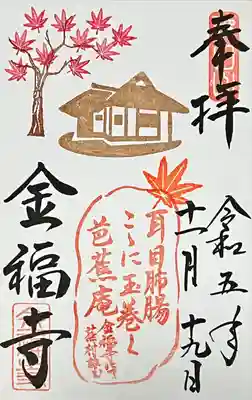 奉拝
令和五年
十一月十九日
耳目肺腸
こゝに玉巻く
芭蕉庵
金福寺にて
蕪村詠
金福寺